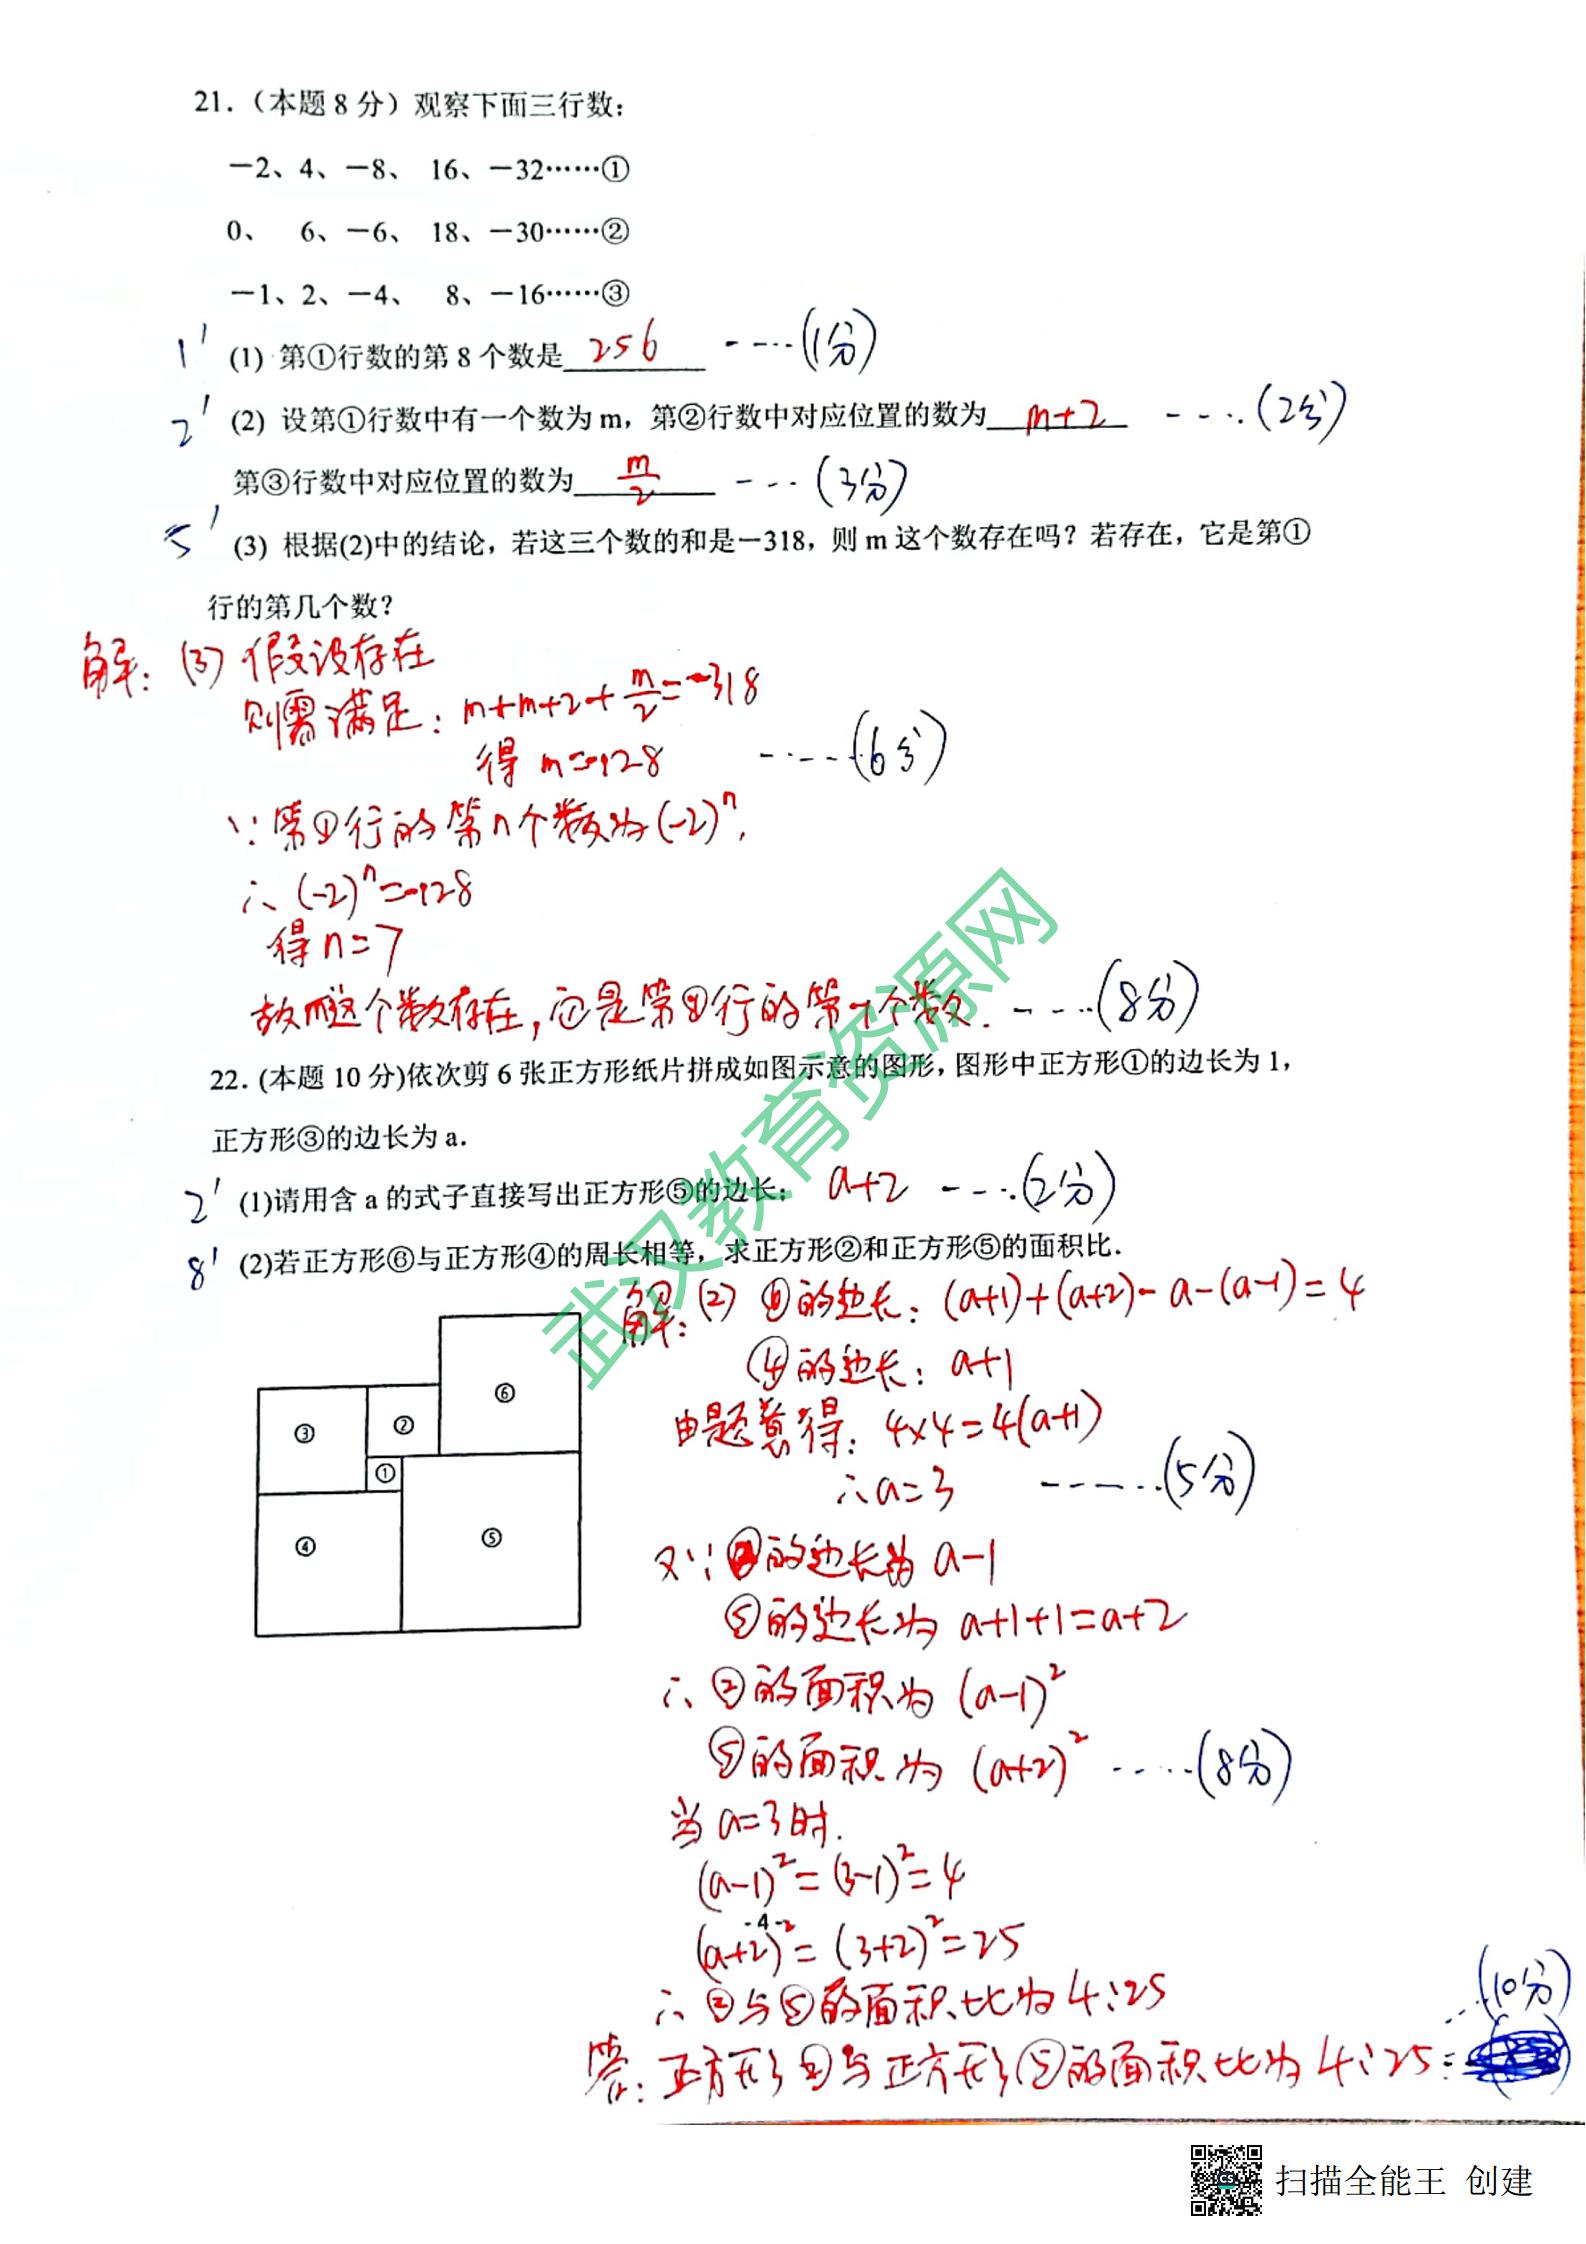 21.（本题 8 分）观察下面三行数：
－2、4、－8、 16、－32……①
0、 6、－6、 18、－30……②
－1、2、－4、 8、－16……③
1′ (1) 第①行数的第 8 个数是 256 ----(1分)
2′ (2) 设第①行数中有一个数为 m，第②行数中对应位置的数为 m+2 ----(2分)
第③行数中对应位置的数为 m/2 ---(3分)
5′ (3) 根据(2)中的结论，若这三个数的和是－318，则 m 这个数存在吗？若存在，它是第①
行的第几个数？
解：(3) 假设存在
则需满足：m+m+2+m/2=-318
得 m=-128 -----(6分)
∵第①行的第n个数为(-2)ⁿ，
∴(-2)ⁿ=-128
得 n=7
故m这个数存在，它是第①行的第7个数. ----(8分)
22. (本题 10 分)依次剪 6 张正方形纸片拼成如图示意的图形，图形中正方形①的边长为 1，
正方形③的边长为 a．
2′ (1)请用含 a 的式子直接写出正方形⑤的边长； a+2 ----(2分)
8′ (2)若正方形⑥与正方形④的周长相等，求正方形②和正方形⑤的面积比．
解：(2) ⑥的边长：(a+1)+(a+2)-a-(a-1)=4
④的边长：a+1
由题意得：4×4=4(a+1)
∴a=3 ------(5分)
又∵②的边长为 a-1
⑤的边长为 a+1+1=a+2
∴②的面积为 (a-1)²
⑤的面积为 (a+2)² -----(8分)
当 a=3时.
(a-1)²=(3-1)²=4
- 4 -
(a+2)²=(3+2)²=25
∴②与⑤的面积比为 4:25
(10分)
答：正方形②与正方形⑤的面积比为 4:25
③
②
⑥
①
④
⑤
武汉教育资源网
CS
扫描全能王 创建